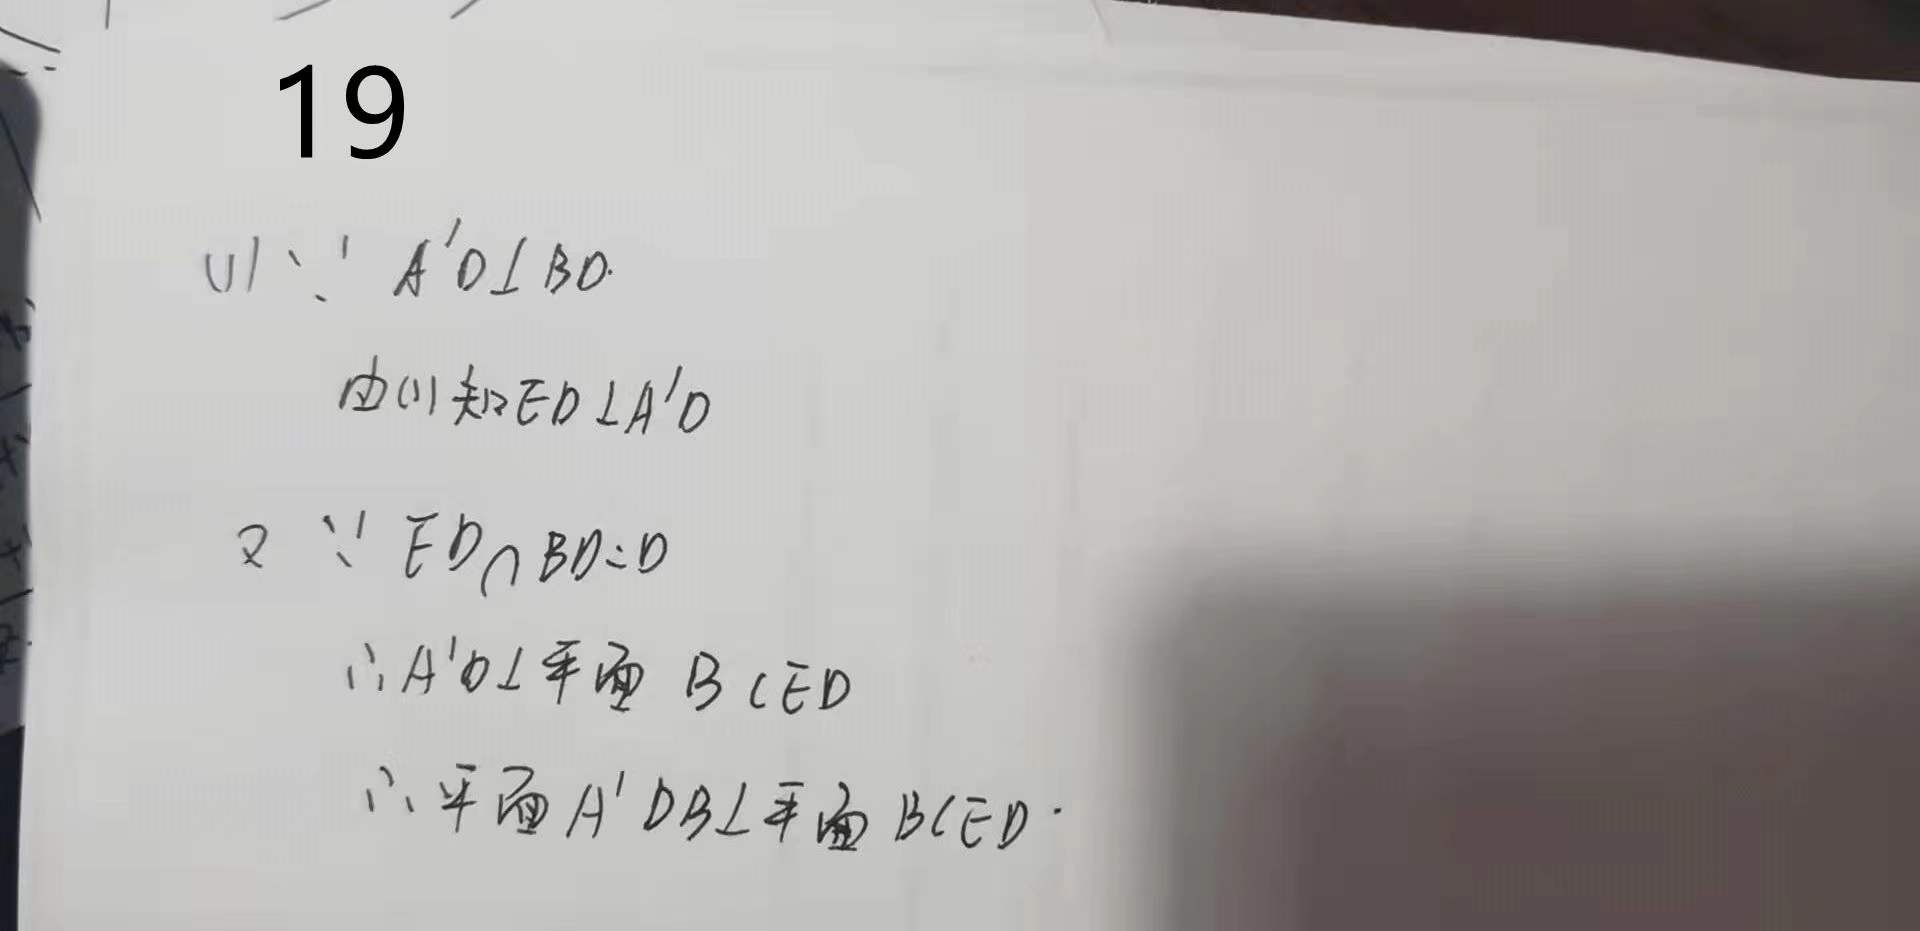 19
(1) ∵ A'D⊥BD.
由(1)知ED⊥A'D
又 ∵ ED∩BD=D
∴A'D⊥平面 BCED
∴平面A'DB⊥平面BCED.